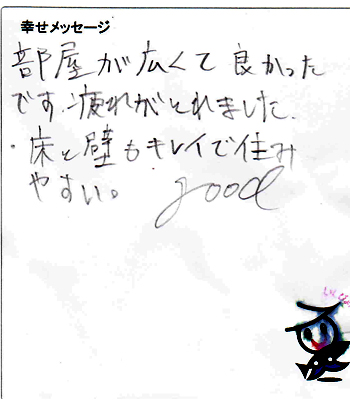 幸せメッセージ
部屋が広くて良かった
です。疲れがとれました。
・床と壁もキレイで住み
やすい。 good